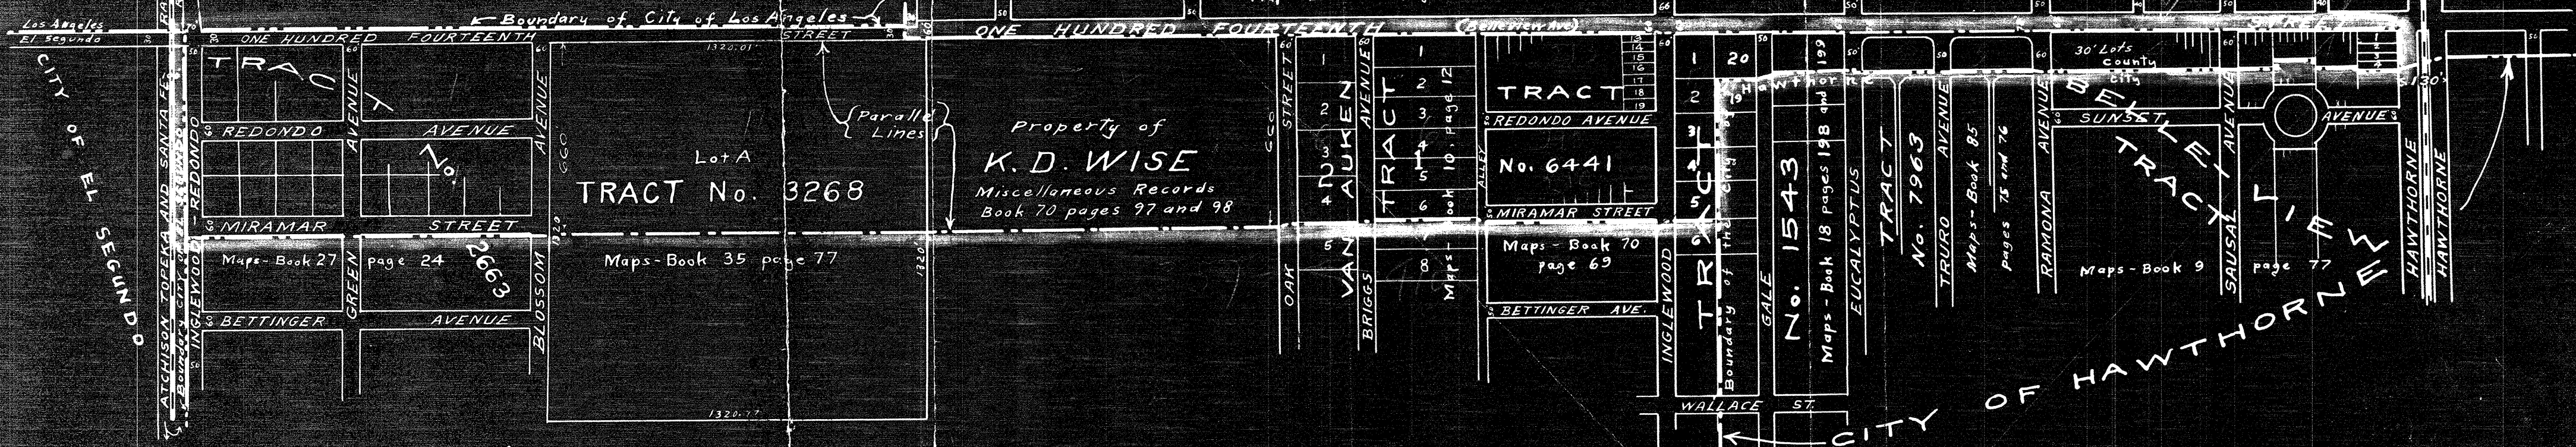 Los Angeles
El Segundo
← Boundary of City of Los Angeles
ONE HUNDRED FOURTEENTH STREET
ONE HUNDRED FOURTEENTH (Belleview Ave) STREET
CITY OF EL SEGUNDO
ATCHISON TOPEKA AND SANTA FE
Boundary City of EL SEGUNDO
INGLEWOOD-REDONDO
TRACT No. 2663
REDONDO AVENUE
MIRAMAR STREET
Maps-Book 27 page 24
BETTINGER AVENUE
GREEN AVENUE
BLOSSOM AVENUE
1320.01
660
1320
Lot A
TRACT No. 3268
Maps-Book 35 page 77
1320.77
1320
Parallel
Lines
Property of
K. D. WISE
Miscellaneous Records
Book 70 pages 97 and 98
660
OAK STREET
VAN AUKEN TRACT
1
2
3
4
5
BRIGGS AVENUE
Maps-Book 10, page 12
1
2
3
4
5
6
8
ALLEY
TRACT
No. 6441
13
14
15
16
17
18
19
REDONDO AVENUE
MIRAMAR STREET
Maps - Book 70
page 69
BETTINGER AVE.
INGLEWOOD
TRACT No. 1543
1
2
3
4
5
20
19
Hawthorne
Boundary of the City of
GALE
Maps-Book 18 pages 198 and 199
WALLACE ST.
EUCALYPTUS
TRACT
No. 7963
TRURO AVENUE
Maps-Book 85
pages 75 and 76
RAMONA AVENUE
30' Lots
County
City
BELLEVIEW TRACT
SUNSET AVENUE
SAUSAL AVENUE
Maps-Book 9 page 77
1
2
3
4
130'
HAWTHORNE
HAWTHORNE
CITY OF HAWTHORNE